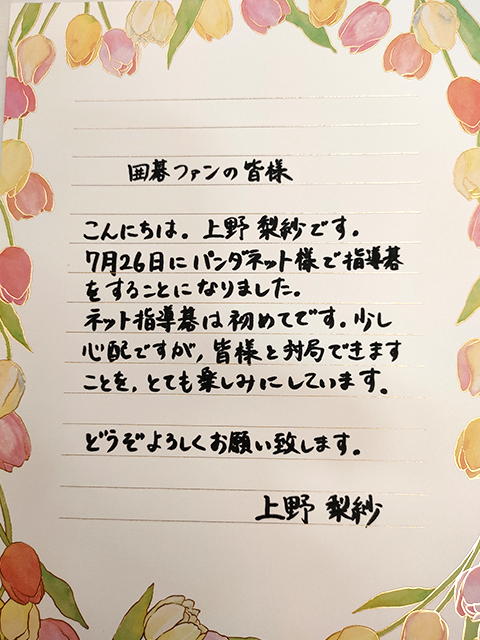 囲碁ファンの皆様
こんにちは。上野 梨紗です。
7月26日にパンダネット様で指導碁
をすることになりました。
ネット指導碁は初めてです。少し
心配ですが、皆様と対局できます
ことを、とても楽しみにしています。
どうぞよろしくお願い致します。
上野 梨紗